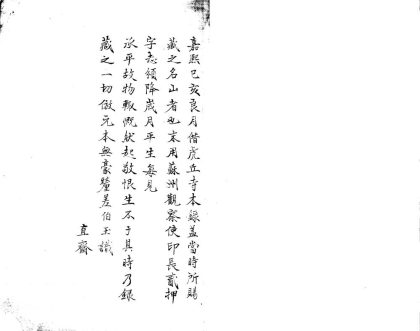 嘉熙己亥良月借虎丘寺本録蓋當時所賜
藏之名山者也末用蘇州觀察使印長貳押
字志頒降歲月平生每見
承平故物輒慨然起敬恨生不于其時乃録
藏之一切倣元本無豪釐差伯玉識
直齋